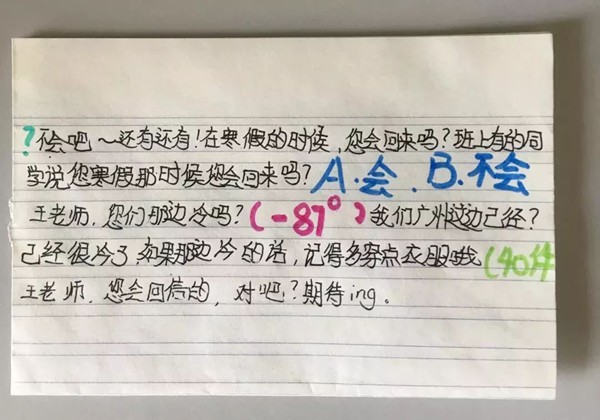 ?不会吧~还有还有!在寒假的时候,您会回来吗?班上有的同
学说您寒假那时候您会回来吗?A.会.B.不会
王老师,您们那边冷吗?(-87°)我们广州这边已经?
已经很冷了,如果那边冷的话,记得多穿点衣服哦(40件
王老师,您会回信的,对吧?期待ing。